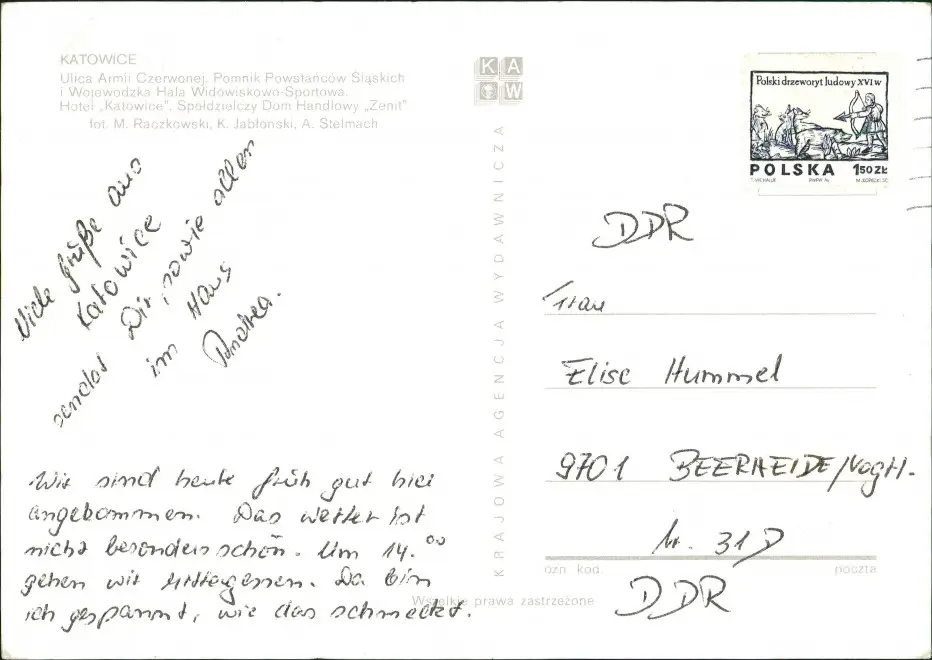 KATOWICE
Ulica Armii Czerwonej. Pomnik Powstańców Śląskich
i Wojewódzka Hala Widowiskowo-Sportowa.
Hotel „Katowice". Spółdzielczy Dom Handlowy „Zenit"
fot. M. Raczkowski, K. Jabłoński, A. Stelmach
KAW
Polski drzeworyt ludowy XVI w
POLSKA 1,50 ZŁ
Viele Grüße aus
Katowice
sendet Dir, sowie allen
im Haus
Andrea.
Wir sind heute früh gut hier
angekommen. Das Wetter ist
nicht besonders schön. Um 14.00
gehen wir Mittagessen. Da bin
ich gespannt, wie das schmeckt.
KRAJOWA AGENCJA WYDAWNICZA
DDR
Frau
Elise Hummel
9701 BEERHEIDE/Vogtl.
Nr. 31D
ozn. kod.
poczta
DDR
Wszelkie prawa zastrzeżone